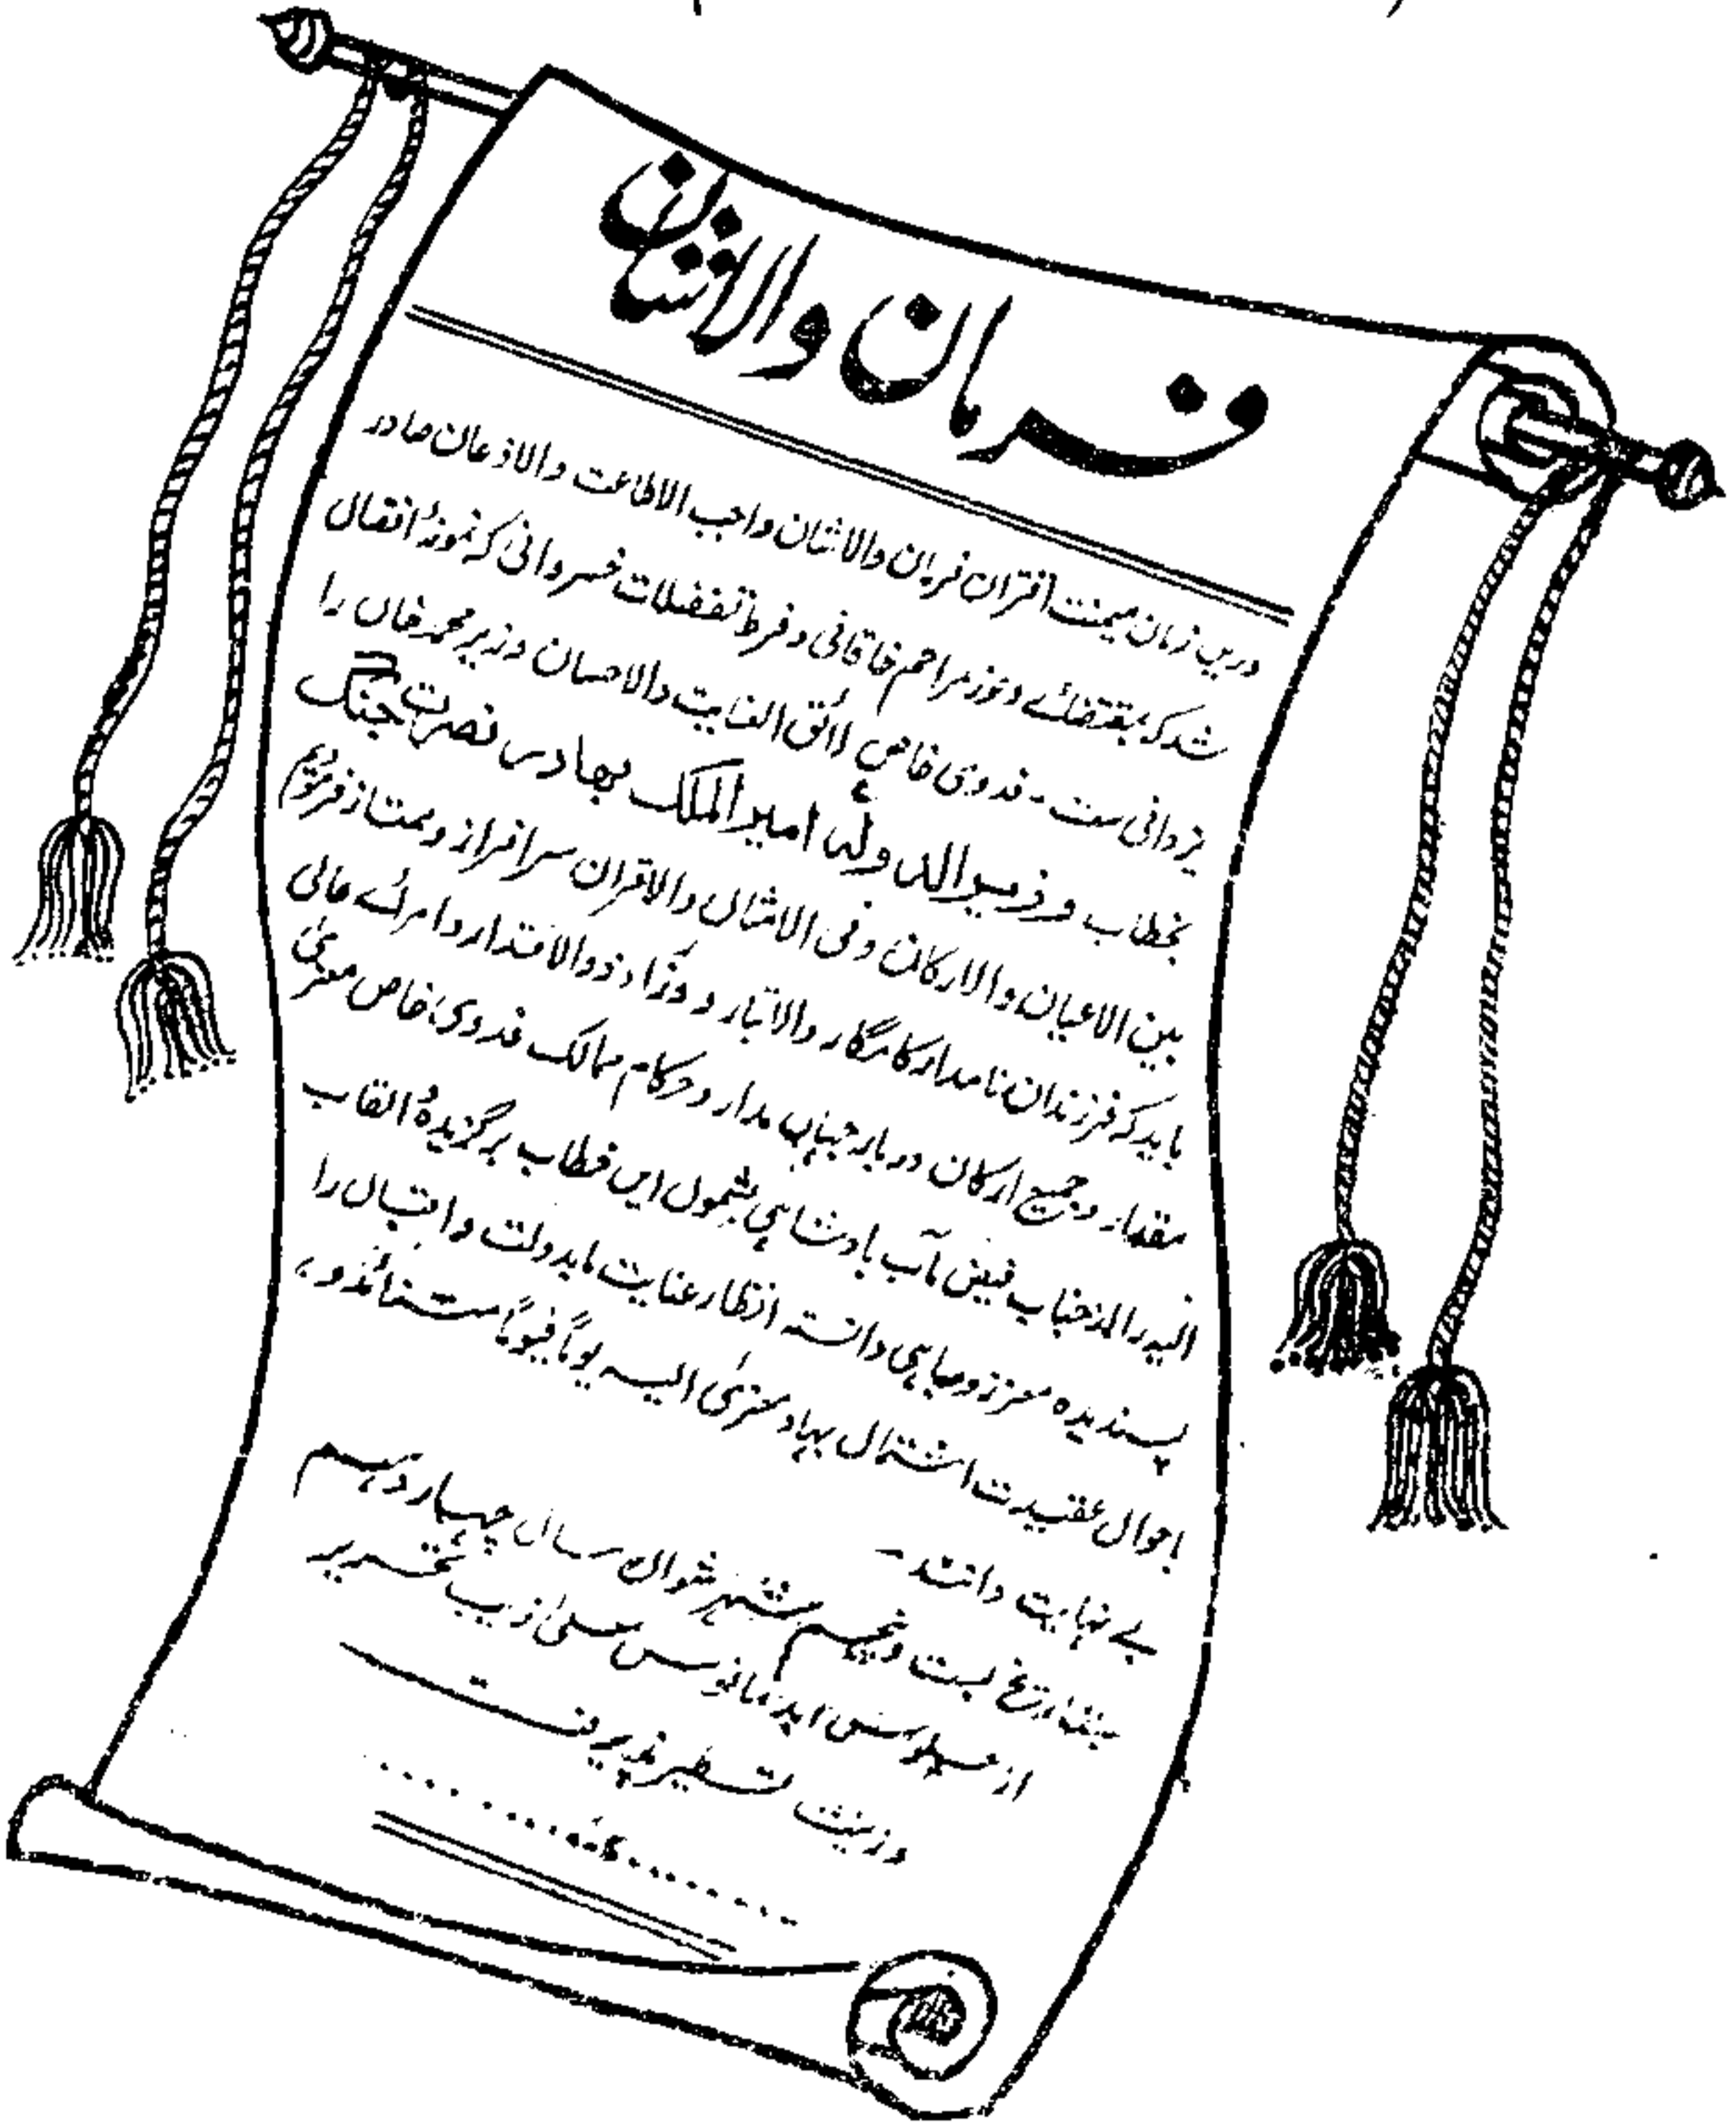 فرمان والاشان
درین زمان میمنت اقتران فرمان والاشان واجب الاطاعت والاذعان صادر
شد کہ بمقتضائے وفور مراحم خاقانی و فرط تفضلات خسروانی کہ نمونۂ افضال
یزدانی ست - فدوی خاص لائق العنایت والاحسان وزیر محمد خاں را
بخطاب وزیر الدولہ امیر الملک بهادر نصرت جنگ
بین الاعیان والارکان وفی الامثال والاقران سرافراز و ممتاز فرمودیم
باید کہ فرزندان نامدار کامگار والاتبار و وزراء ذوالاقتدار وامرائے عالی
مقدار و جمیع ارکان دربار جہاں مدار و حکام ممالک فدوی خاص معزی
الیہ را از جناب فیض مآب بادشاہی بشمول ایں خطاب برگزیدہ القاب
پسندیدہ معزز و مباہی دانستہ انظار عنایت مابدولت و اقبال را
بحال عقیدت اشتمال بہادر معزی الیہ یوماً فیوماً
بے نہایت دانند -
بتاریخ بست وپنجم شہر شوال سال چہاردہم
از جلوس ابد مانوس معلی زیب تحریر
وزینت تسطیر پذیرفت